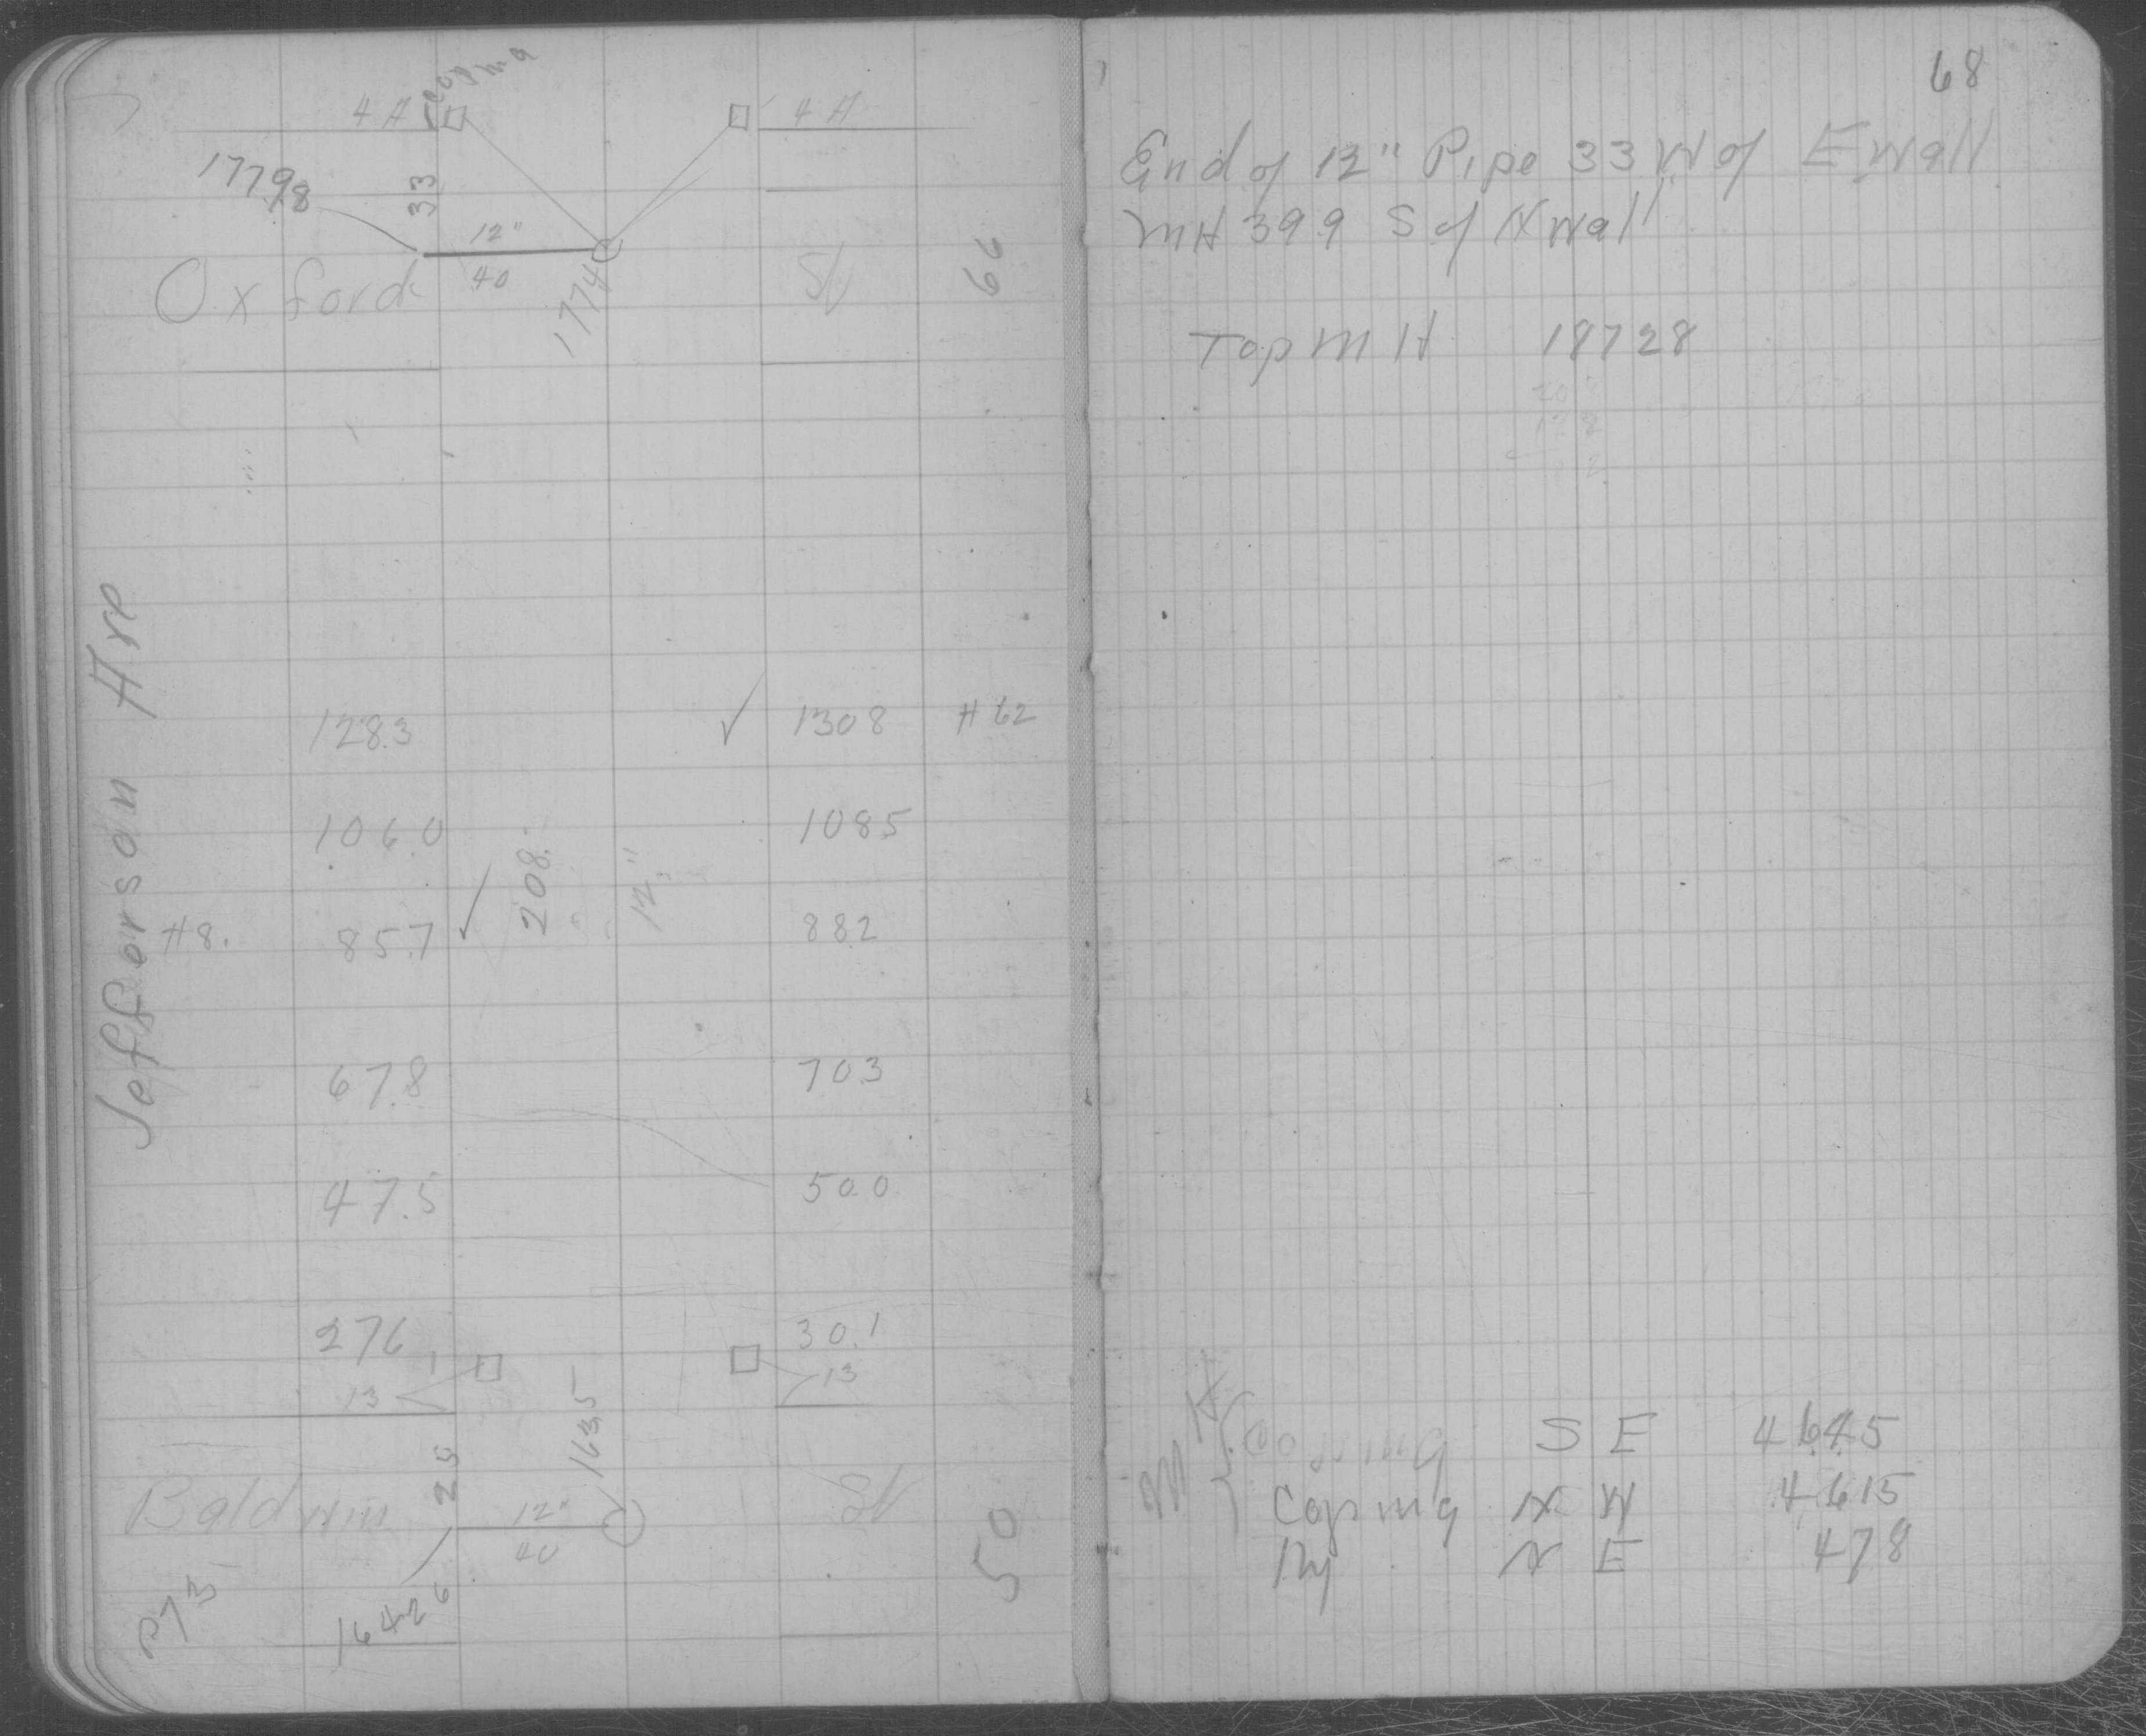 Coping
4 H
4 H
17798
33
12"
40
1774
Oxford
St
66
Jefferson Ave
1283
1308
H 62
106.0
1085
208.
12"
H 8.
857
882
67.8
703
47.5
500
276
30.1
13
13
1635
25
Baldwin
12"
40
St
50
P 73
16426
68
End of 12" Pipe 33 W of E wall
MH 399 S of N wall
Top M H 18728
M H
Coping S E 4645
Coping N W 4615
N E 478